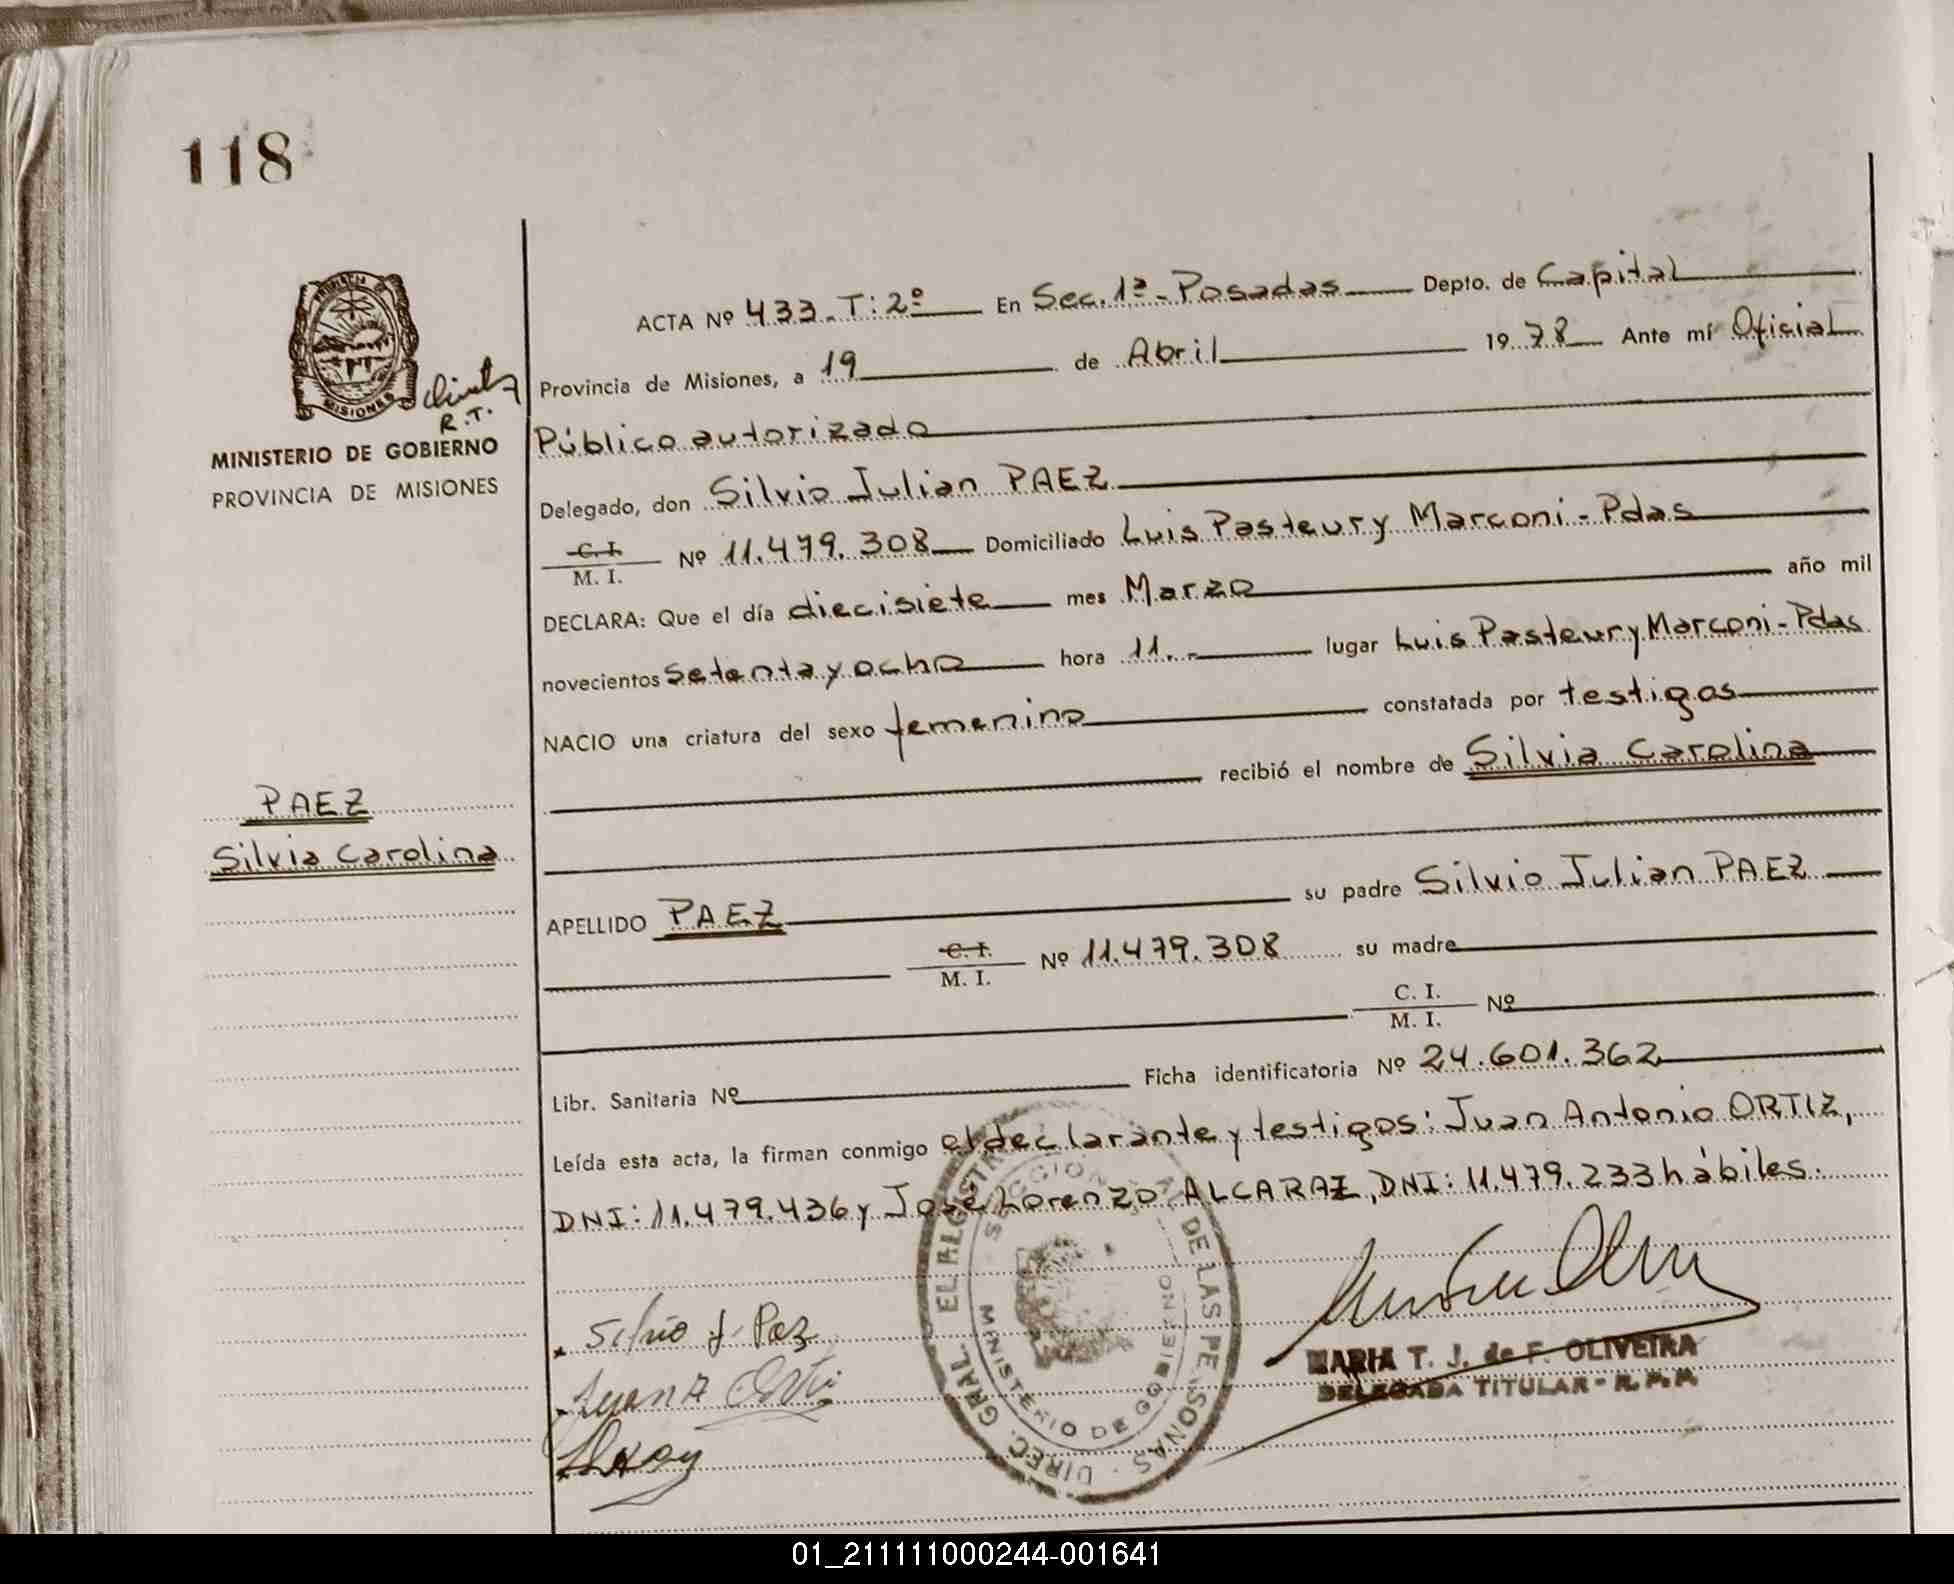 118
ACTA Nº 433. T: 2º En Sec. 1ª - Posadas Depto. de Capital
Provincia de Misiones, a 19 de Abril 1978 Ante mí Oficial
R.T.
MINISTERIO DE GOBIERNO
PROVINCIA DE MISIONES
MISIONES
Público autorizado
Delegado, don Silvio Julian PAEZ
C. I.
M. I. Nº 11.479.308 Domiciliado Luis Pasteur y Marconi - Pdas
DECLARA: Que el día diecisiete mes Marzo año mil
novecientos setenta y ocho hora 11.- lugar Luis Pasteur y Marconi - Pdas
NACIO una criatura del sexo femenino constatada por testigos
recibió el nombre de Silvia Carolina
PAEZ
Silvia Carolina
APELLIDO PAEZ su padre Silvio Julian PAEZ
C. I.
M. I. Nº 11.479.308 su madre
C. I.
M. I. Nº
Libr. Sanitaria Nº Ficha identificatoria Nº 24.601.362
Leída esta acta, la firman conmigo el declarante y testigos: Juan Antonio ORTIZ,
DNI: 11.479.436 y José Lorenzo ALCARAZ, DNI: 11.479.233 hábiles.
Silvio J. Paez
Juan A Orti
DE LAS PERSONAS
MINISTERIO DE GOBIERNO
DIREC. GRAL.
MARIA T. J. de F. OLIVEIRA
DELEGADA TITULAR - R. P. P.
01_211111000244-001641